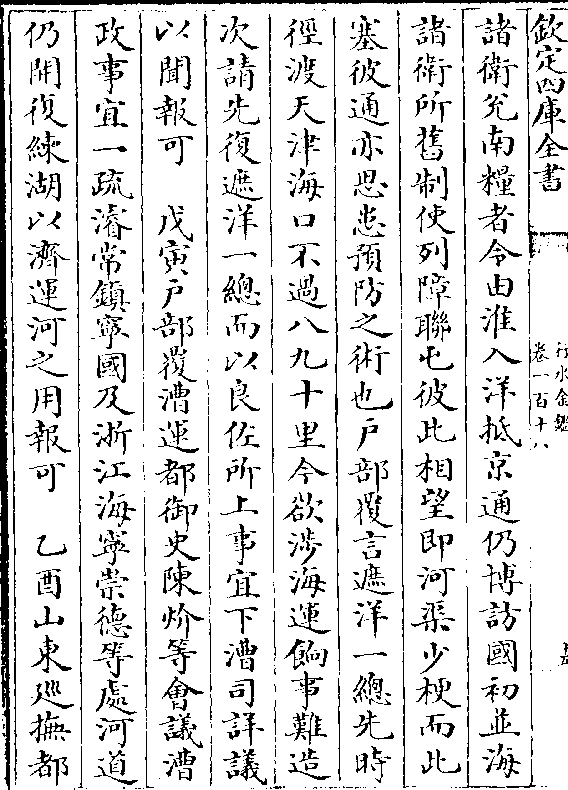 欽定四庫全書
行水金鑑
卷一百十八
諸衛兊南糧者令由淮入洋抵京通仍博訪國初並海
諸衛所舊制使列障聯屯彼此相望即河渠少梗而此
塞彼通亦思患預防之術也戶部覆言遮洋一總先時
徑渡天津海口不過八九十里今欲涉海運餉事難造
次請先復遮洋一總而以良佐所上事宜下漕司詳議
以聞報可　戊寅戶部覆漕運都御史陳炌等會議漕
政事宜一疏濬常鎮寧國及浙江海寧崇德等處河道
仍開復練湖以濟運河之用報可　乙酉山東巡撫都